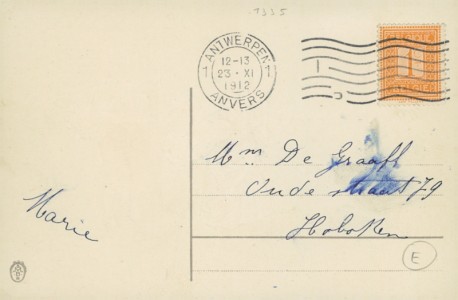 1335
ANTWERPEN
1 1
12-13
23 · XI
1912
ANVERS
1
Mm De Graaff
Oude straat 79
Hoboken
Marie
E